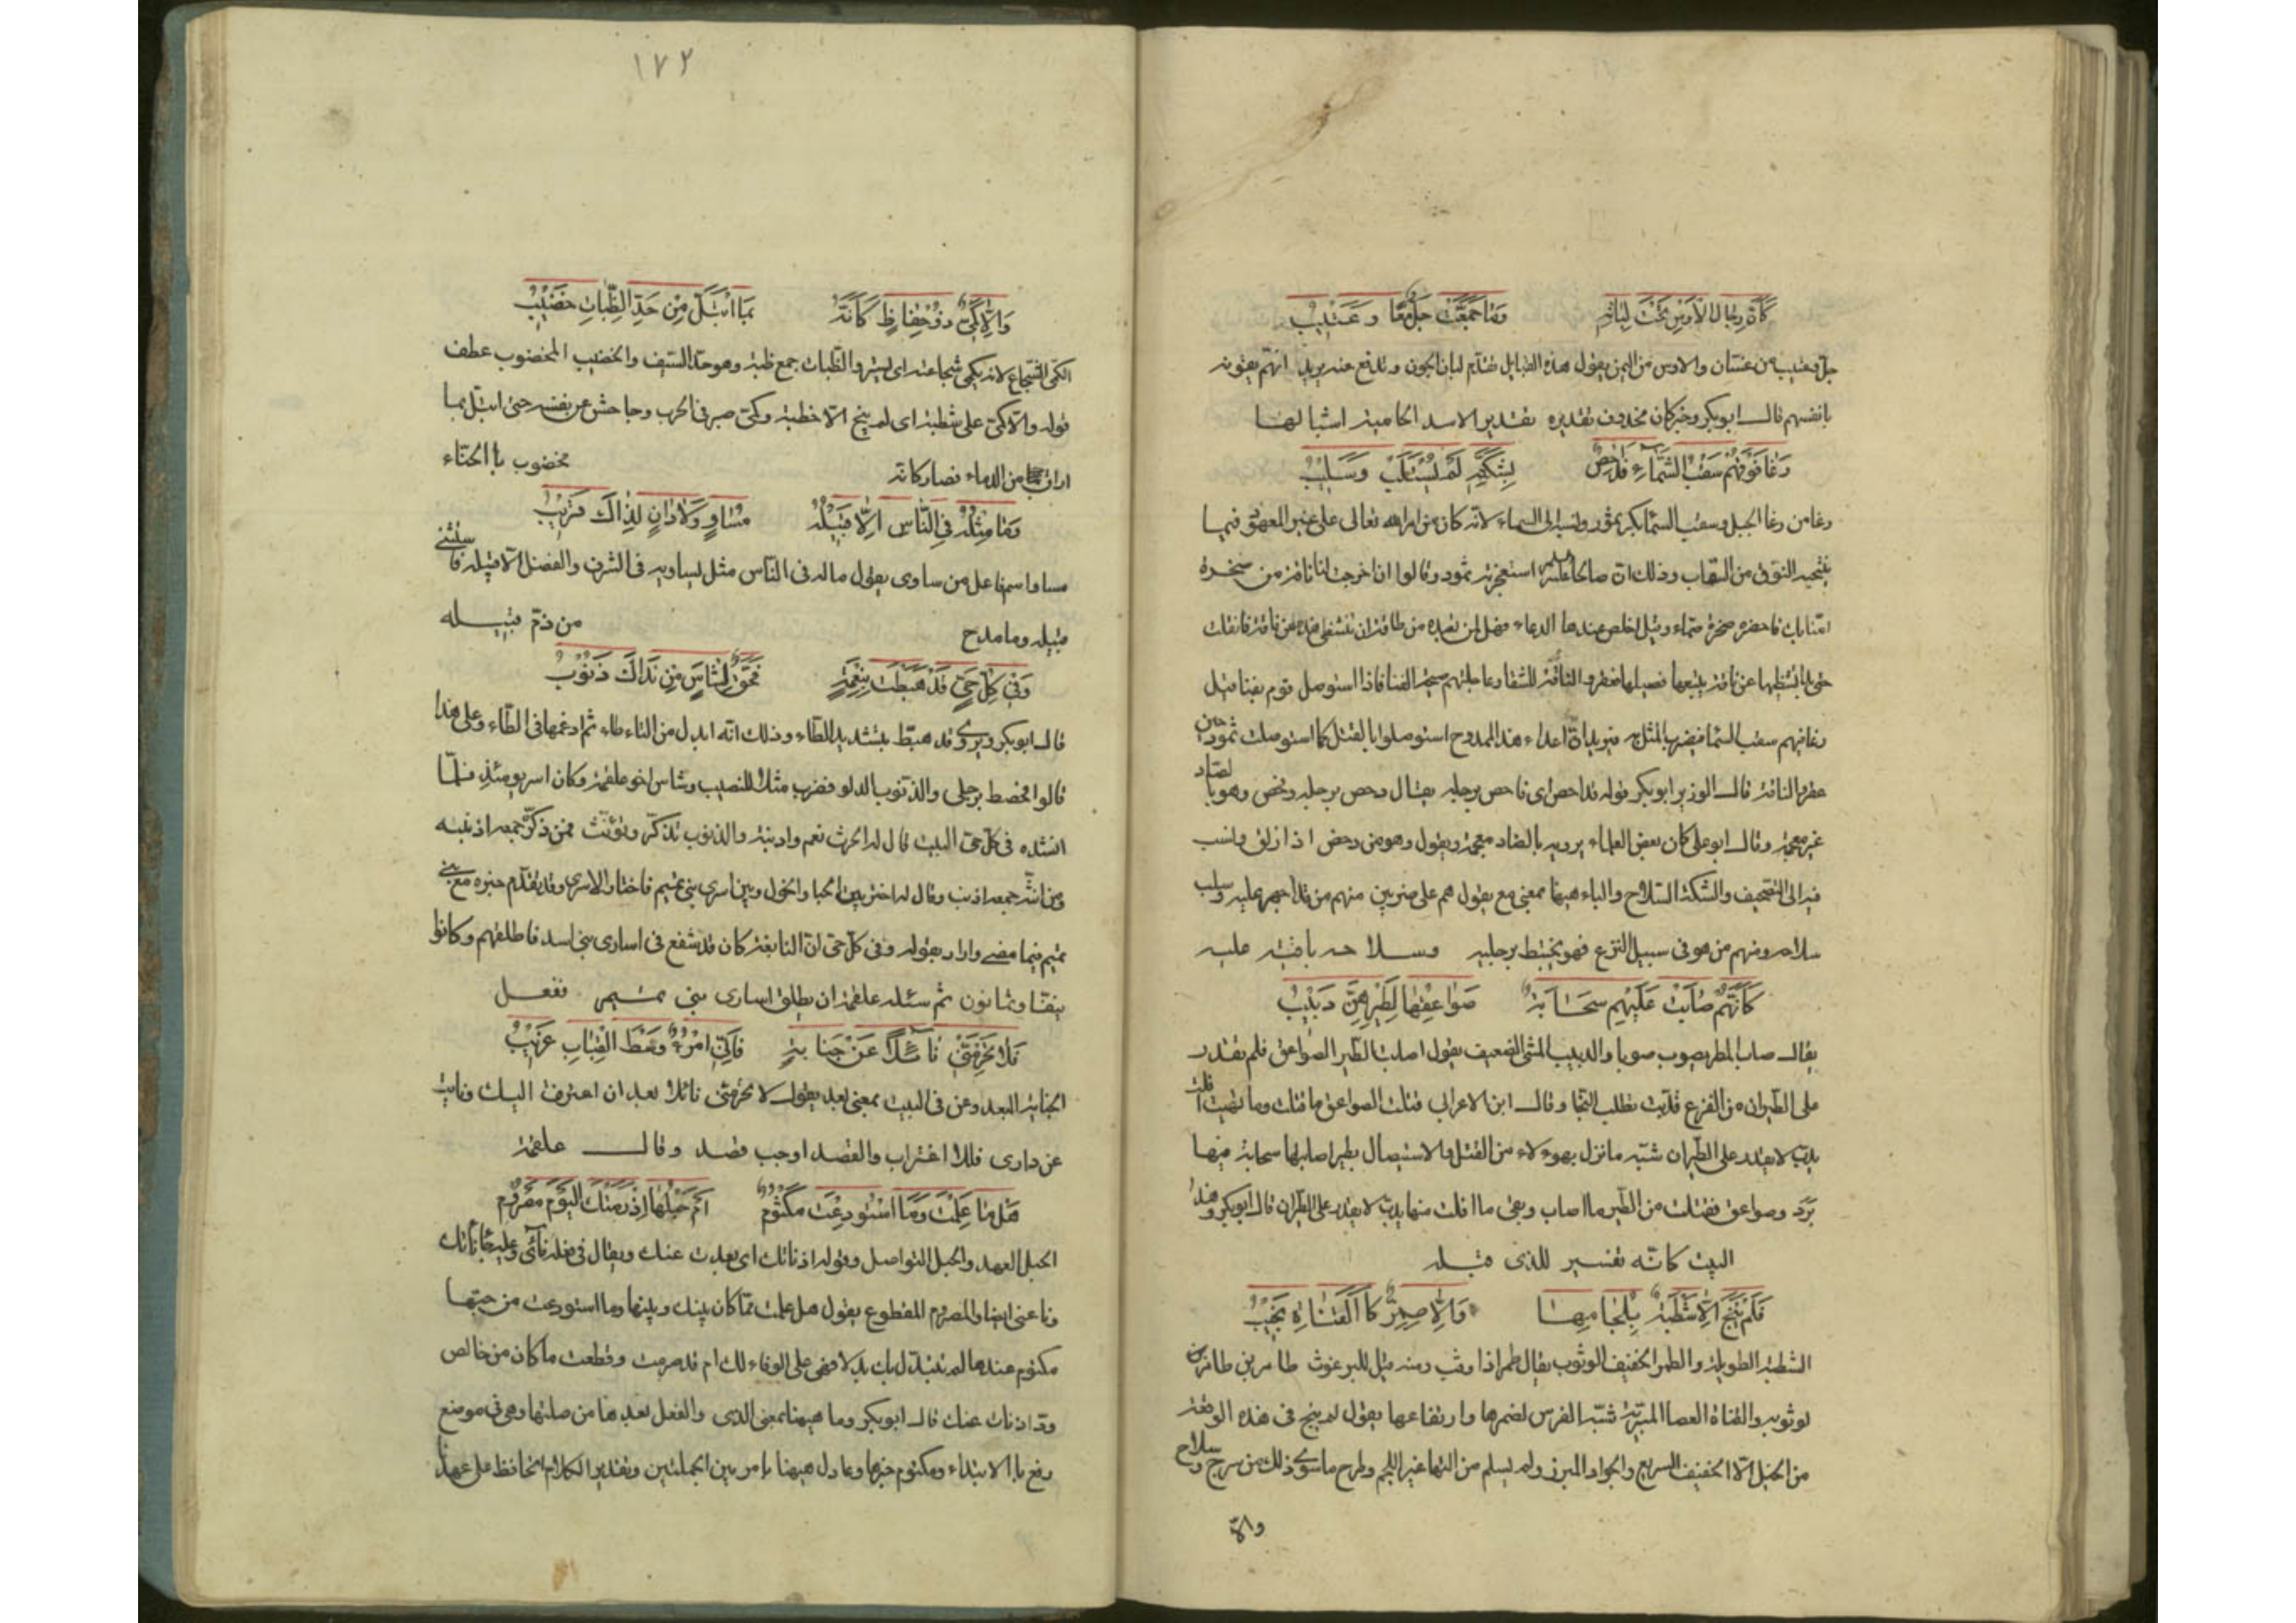 كأن رجال الأوس تحت لبانه وما جمعت جل معا وعتيب
جل وعتيب من غسان والاوس من اليمن يقول هذه القبايل تقدم لبان الجون وتدفع عنه يريد انهم يقونه
بانفسهم قال ابو بكر وخبر كان محذوف تقديره تقدير الاسد الحامية اشبالها
رغا فوقهم سقب السماء فداحص بشكته لم يستلب وسليب
رغا من رغا الجمل وسقب السما بكر ثمود ونسبه الى السماء لانه كان من امر الله تعالى على غير المعهود فيما
ينتجه النوق من السقاب وذلك ان صالحا عليه السلم استعجزته ثمود وقالوا ان اخرجت لنا ناقة من صخرة
امنا بك فاحضره صخرة صماء وقيل اخلص عندها الدعاء
رغا فيهم سقب السما فيضربه المثل به فيريد ان اعداء هذا الممدوح استوصلوا بالقتل كما استوصلت ثمود حين
عقروا الناقة قال الوزير ابو بكر قوله فداحص اي فاحص برجليه يقال دحص برجليه وفحص وهو بالصاد
غير معجمة وقال ابو علي كان بعض العلماء يرويه بالضاد معجمة ويقول وهو من دحض اذا زلق ونسب
فيه الى التصحيف والشكة السلاح والباء هيهنا بمعنى مع يقول هم على ضربين منهم من قد اجهز عليه وسلب
سلاحه ومنهم من هو في سبيل النزع فهو يختبط برجليه وسلاحه باقية عليه
كأنهم صابت عليهم سحابة صواعقها لطيرهن دبيب
يقال صاب المطر يصوب صوبا والدبيب المشي الضعيف يقول اصابت الطير الصواعق فلم تقدر
على الطيران من الفزع فدبت تطلب النجا وقال ابن الاعرابي قتلت الصواعق ما قتلت وما بقيت افلت
يدب لا يقدر على الطيران شبه ما نزل بهوءلاء من القتل والاستيصال بطير اصابها سحابة فيها
برد وصواعق فقتلت من الطير ما اصاب وبقي ما افلت منها يدب لا يقدر على الطيران قال ابو بكر وهذا
البيت كانه تفسير للذي قبله
فلم ينج الا شطبة بلجامها والا طمر كالقناة نجيب
الشطبة الطويلة والطمر الخفيف الوثوب يقال طمر اذا وثب ومنه قيل للبرغوث طامر بن طامر
لوثوبه والقناة العصا المبرية شبه الفرس لضمرها وارتفاعها يقول لم ينج في هذه الوقعة
من الخيل الا الخفيف السريع والجواد المبرز ولم يسلم من التها غير اللجم وطرح ما سوى ذلك من سرج وسلاح
والا
١٧٢
والا كمي ذو حفاظ كأنه بما ابتل من حد الظبات خضيب
الكمي الشجاع لانه يكمي شجاعته اي يستر والظبات جمع ظبة وهو حد السيف والخضيب المخضوب عطف
قوله والا كمي على شطبة اي لم ينج الا شطبة وكمي صبر في الحرب وجاحش عن نفسه حتى ابتل بما
اراق من الدماء فصار كانه مخضوب بالحناء
وما مثله في الناس الا قبيله مساو ولا دان لذاك قريب
مساو اسم فاعل من ساوى يقول ما له في الناس مثل يساويه في الشرف والفضل الا قبيله فاستثنى
قبيله وما مدح من ذم قبيله
وفي كل حي قد خبطت بنعمة فحق لشاس من نداك ذنوب
قال ابو بكر ويروى قد خبط بتشديد الطاء وذلك انه ابدل من التاء طاء ثم ادغمها في الطاء وعلى هذا
قالوا فحصط برجلي والذنوب الدلو فضرب مثلا للنصيب وشاس اخو علقمة وكان اسر يومئذ فلما
انشده في كل حي البيت قال له الحرث نعم واذنبة والذنوب تذكر وتؤنث فمن ذكر جمعه اذنبه
ومن انث جمعه اذنب وقال له اختر بين الحبا والخول وبين اسرى بني تميم فاختار الاسرى وقد تقدم خبره مع بني
تميم فيما مضى واراد بقوله وفي كل حي ان النابغة كان قد شفع في اسارى بني اسد فاطلقهم وكانوا
نيفا وثمانون ثم سئله علقمة ان يطلق اسارى بني تميم ففعل
فلا تحرمني نائلا عن جنابة فاني امرؤ وسط القباب غريب
الجنابة البعد وعن في البيت بمعنى بعد يقول لا تحرمني نائلا بعد ان اغتربت اليك ونايت
عن داري فللاغتراب والقصد اوجب قصد وقال علقمة
هل ما علمت وما استودعت مكتوم ام حبلها اذ نأتك اليوم مصروم
الحبل العهد والحبل التواصل وقوله اذ ناتك اي بعدت عنك ويقال في فعله نآئى
وناعنى ايضا والمصروم المقطوع يقول هل علمت بما كان بينك وبينها وما استودعت من حبها
مكتوم عندها لم تتبدل بك بدلا فهي على الوفاء لك ام قد صرمت وقطعت ما كان من خالص
ود اذ نات عنك قال ابو بكر وما هيهنا بمعنى الذي والفعل بعدها من صلتها وهي في موضع
رفع بالابتداء ومكتوم خبرها وعادل هيهنا بام بين الجملتين وتقدير الكلام احافظ على عهدنا